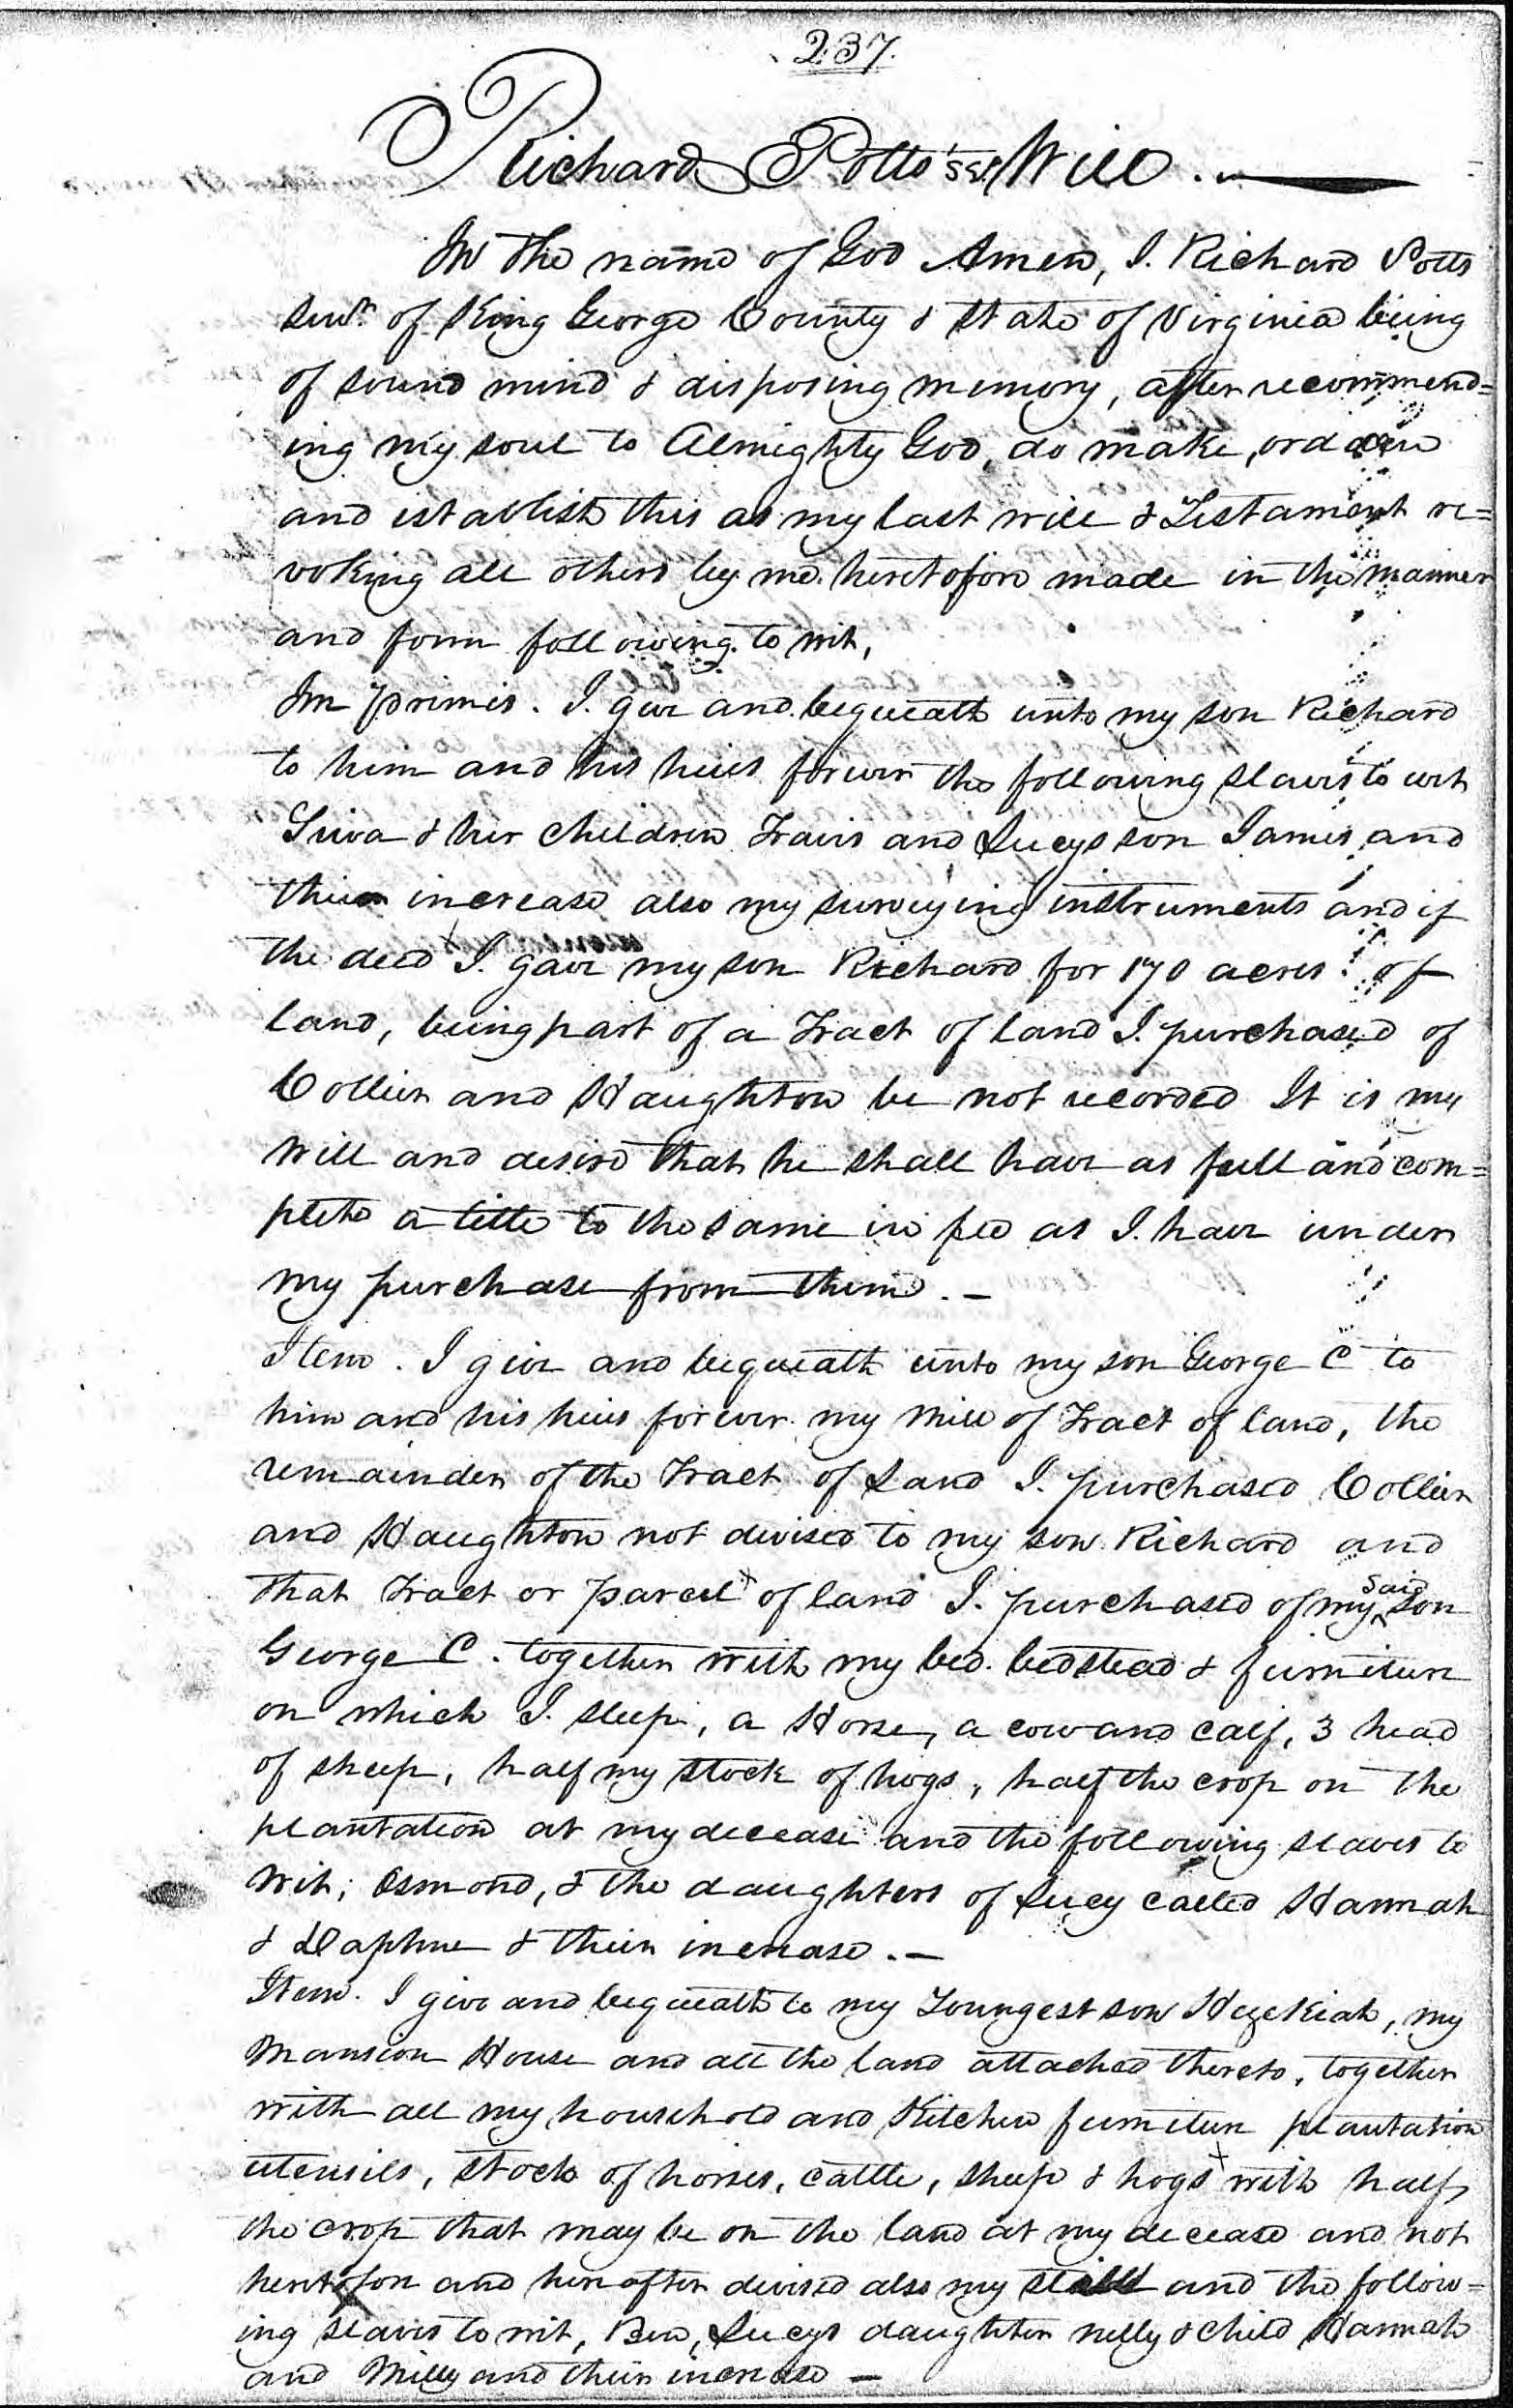 237.
Richard Potts's Will. —
In the name of God Amen, I. Richard Potts
Senr. of King George County & State of Virginia being
of sound mind & disposing memory, after recommend=
ing my soul to Almighty God, do make, ordain
and establish this as my last will & Testament re=
voking all others by me heretofore made in the manner
and form following to wit,
Im primis. I. give and bequeath unto my son Richard
to him and his heirs forever the following slaves to wit
& her children Travis and Lucys son James and
their increase also my surveying instruments and if
the deed I. gave my son Richard for 170 acres of
land, being part of a Tract of land I. purchased of
Collier and Haughton be not recorded It is my
will and desire that he shall have as full and com=
plete a title to the same in fee as I. have under
my purchase from them. —
Item. I give and bequeath unto my son George C to
him and his heirs forever my mill of Tract of land, the
remainder of the Tract of Land I. purchased Collier
and Haughton not devised to my son Richard and
that Tract or parcel of land I. purchased of my said son
George C. together with my bed. bedstead & furniture
on which I. sleep, a Horse, a cow and calf, 3 head
of sheep, half my stock of hogs, half the crop on the
plantation at my decease and the following slaves to
wit; Osmond, & the daughters of Lucy called Hannah
& Daphne & their increase. —
Item. I give and bequeath to my Youngest son Hezekiah, my
Mansion House and all the land attached thereto, together
with all my household and Kitchen furniture plantation
utensils, stock of horses, cattle, sheep & hogs with half
the crop that may be on the land at my decease and not
heretofore and hereafter devised also my still and the follow=
ing slaves to wit, Ben, Lucys daughter nelly & child Hannah
and Milly and their increase —